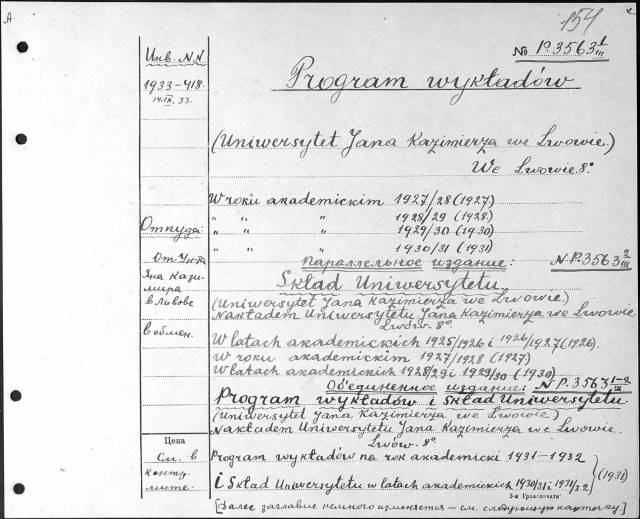 154
№ Р. 3563 1/III
Инв. NN
1933-418.
14.IX.33.
Program wykładów
(Uniwersytet Jana Kazimierza we Lwowie.)
We Lwowie. 8°
W roku akademickim 1927/28 (1927)
" " " 1928/29 (1928.)
" " " 1929/30 (1930)
" " " 1930/31 (1931)
Откуда:
От Ун-та
Яна Кази-
мира
в Львове
в обмен.
Параллельное издание: N P. 3563 2/III
Skład Uniwersytetu
(Uniwersytet Jana Kazimierza we Lwowie.)
Nakładem Uniwersytetu Jana Kazimierza we Lwowie
Lwów. 8°
W latach akademickich 1925/1926 i 1926/1927 (1926).
W roku akademickim 1927/1928 (1927)
W latach akademickich 1928/29 i 1929/30 (1930)
Об'единенное издание: N P. 3563 1-2/III
Program wykładów i Skład Uniwersytetu.
(Uniwersytet Jana Kazimierza we Lwowie)
Nakładem Uniwersytetu Jana Kazimierza we Lwowie.
Lwów. 8°
Цена
См. в
конту
листе.
Program wykładów na rok akademicki 1931-1932
i Skład Uniwersytetu w latach akademickich 1930/31 i 1931/32 } (1931)
[Далее заглавие немного изменяется – см. следующую карточку.]